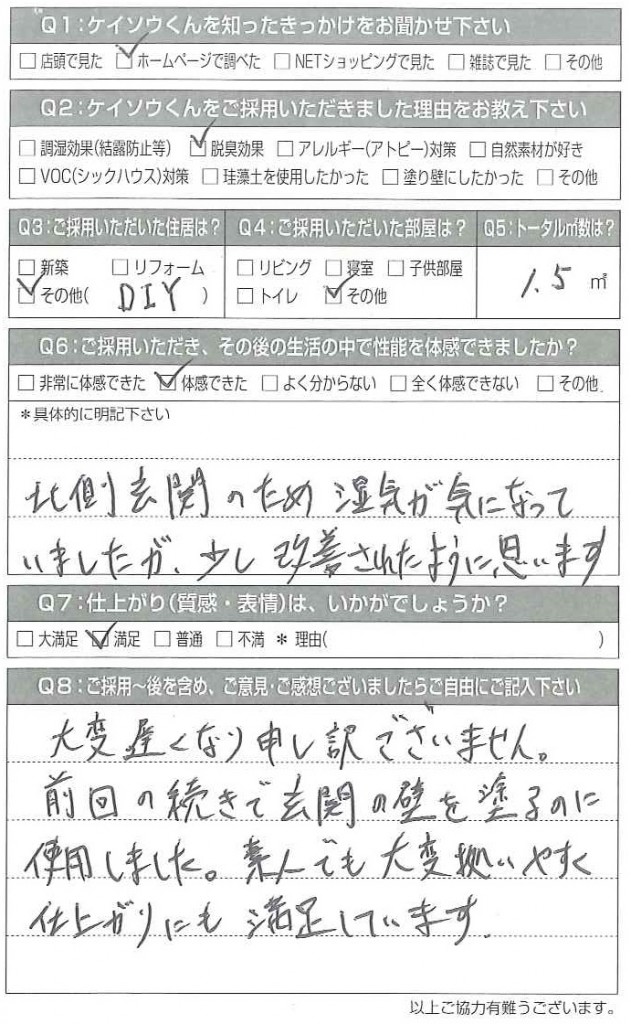 Q1:ケイソウくんを知ったきっかけをお聞かせ下さい
□店頭で見た ☑ホームページで調べた □NETショッピングで見た □雑誌で見た □その他
Q2:ケイソウくんをご採用いただきました理由をお教え下さい
□調湿効果(結露防止等) ☑脱臭効果 □アレルギー(アトピー)対策 □自然素材が好き
□VOC(シックハウス)対策 □珪藻土を使用したかった □塗り壁にしたかった □その他
Q3:ご採用いただいた住居は? Q4:ご採用いただいた部屋は? Q5:トータル㎡数は?
□新築 □リフォーム □リビング □寝室 □子供部屋
☑その他( DIY ) □トイレ ☑その他 1.5 ㎡
Q6:ご採用いただき、その後の生活の中で性能を体感できましたか?
□非常に体感できた ☑体感できた □よく分からない □全く体感できない □その他
*具体的に明記下さい
北側玄関のため湿気が気になって
いましたが、少し改善されたように思います
Q7:仕上がり(質感・表情)は、いかがでしょうか?
□大満足 ☑満足 □普通 □不満 *理由( )
Q8:ご採用~後を含め、ご意見・ご感想ございましたらご自由にご記入下さい
大変遅くなり申し訳でざいません。
前回の続きで玄関の壁を塗るのに
使用しました。素人でも大変扱いやすく
仕上がりにも満足しています。
以上ご協力有難うございます。